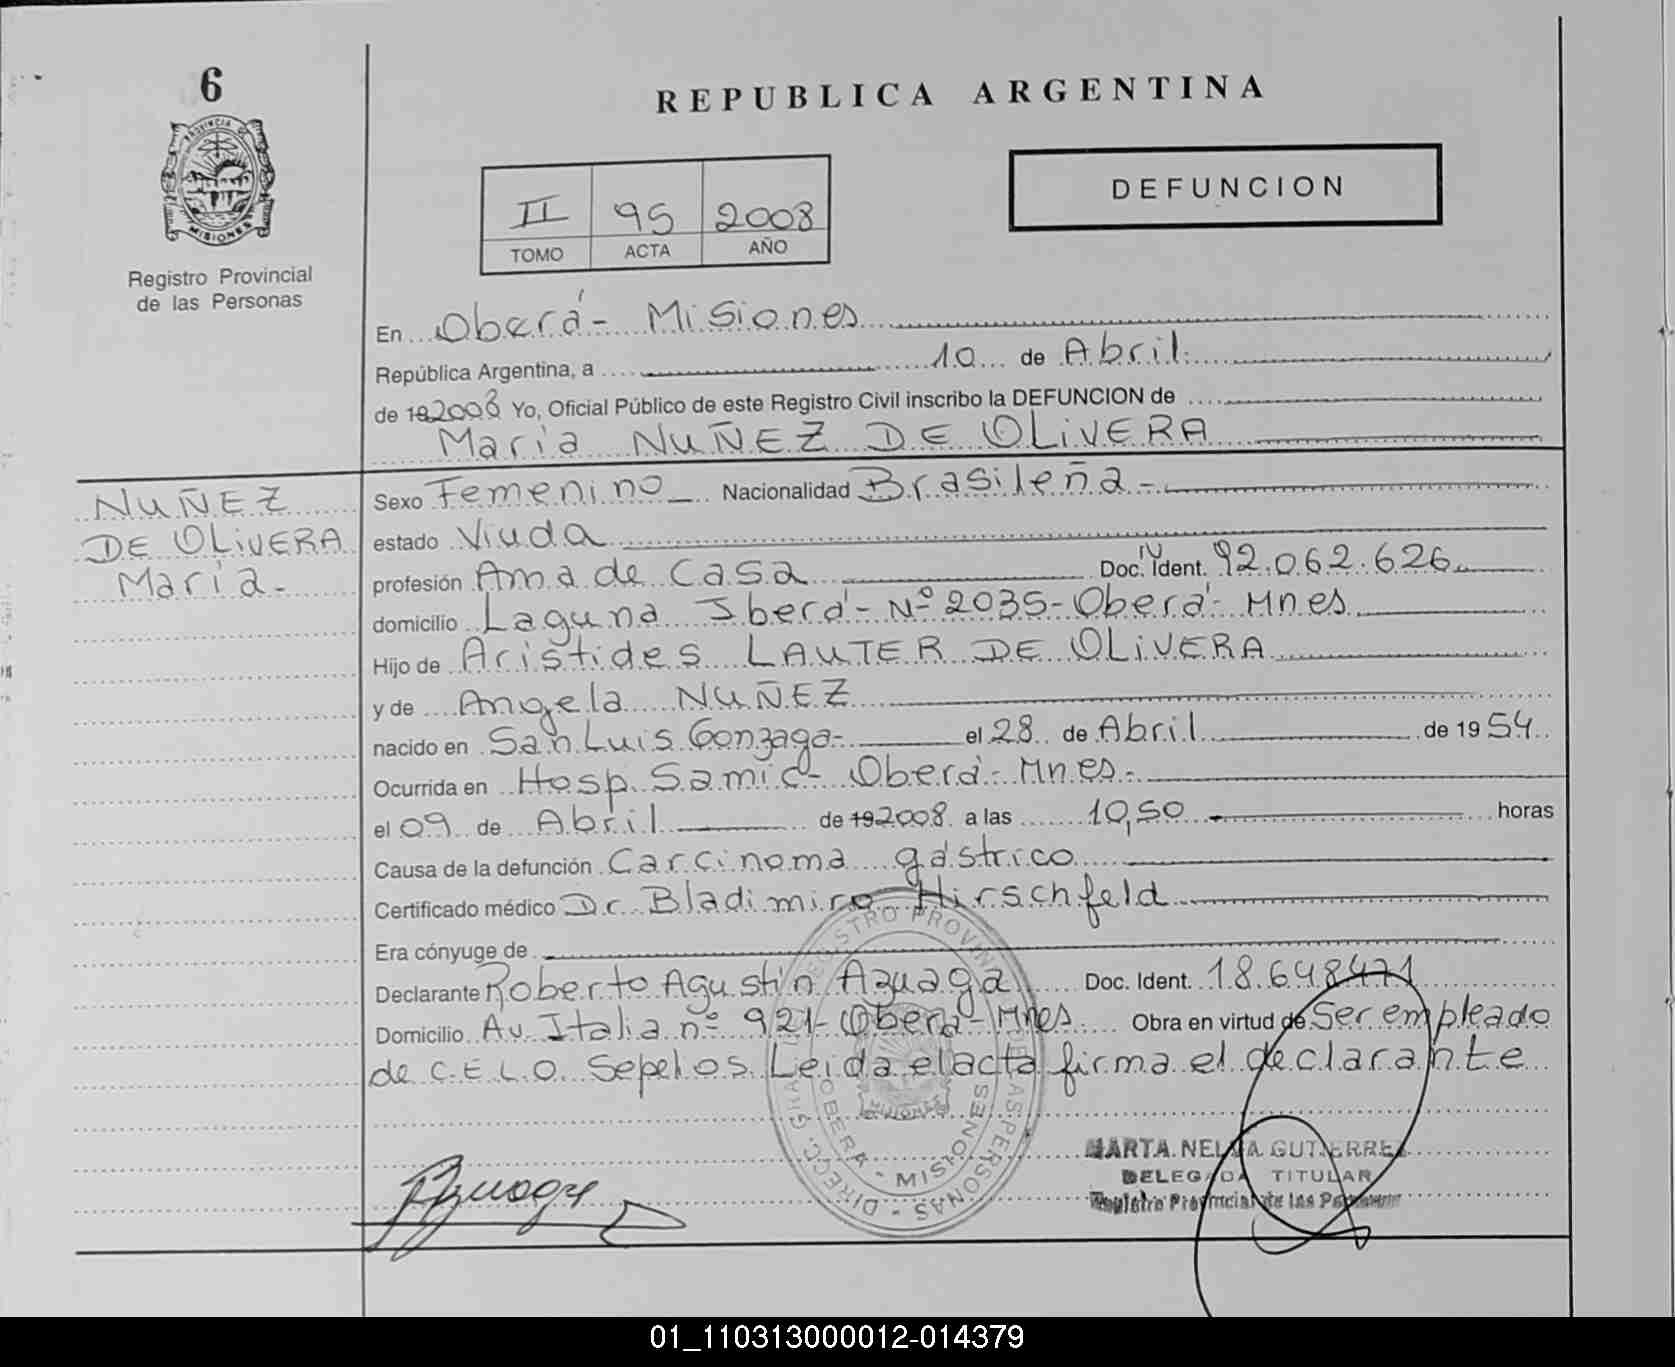 6
PROVINCIA DE
MISIONES
Registro Provincial
de las Personas
REPUBLICA ARGENTINA
II 95 2008
TOMO ACTA AÑO
DEFUNCION
En Oberá - Misiones
República Argentina, a 10 de Abril
de 192008 Yo, Oficial Público de este Registro Civil inscribo la DEFUNCION de
María NUÑEZ DE OLIVERA
NUÑEZ
DE OLIVERA
María-
Sexo Femenino Nacionalidad Brasileña-
estado Viuda
profesión Ama de Casa Doc. Ident. 92.062.626
domicilio Laguna Iberá- Nº 2035- Oberá- Mnes
Hijo de Arístides LAUTER DE OLIVERA
y de Angela NUÑEZ
nacido en San Luis Gonzaga- el 28 de Abril de 1954
Ocurrida en Hosp. Samic- Oberá- Mnes-
el 09 de Abril de 192008 a las 10,50 horas
Causa de la defunción Carcinoma gástrico
Certificado médico Dr. Bladimiro Hirschfeld
Era cónyuge de
Declarante Roberto Agustín Azuaga Doc. Ident. 18.648471
Domicilio Av. Italia nº 921- Oberá- Mnes Obra en virtud de Ser empleado
de C.E.L.O. Sepelios. Leida el acta firma el declarante
OBERA - MISIONES
MARTA NELIDA GUTIERREZ
DELEGADA TITULAR
Registro Provincial de las Personas
01_110313000012-014379